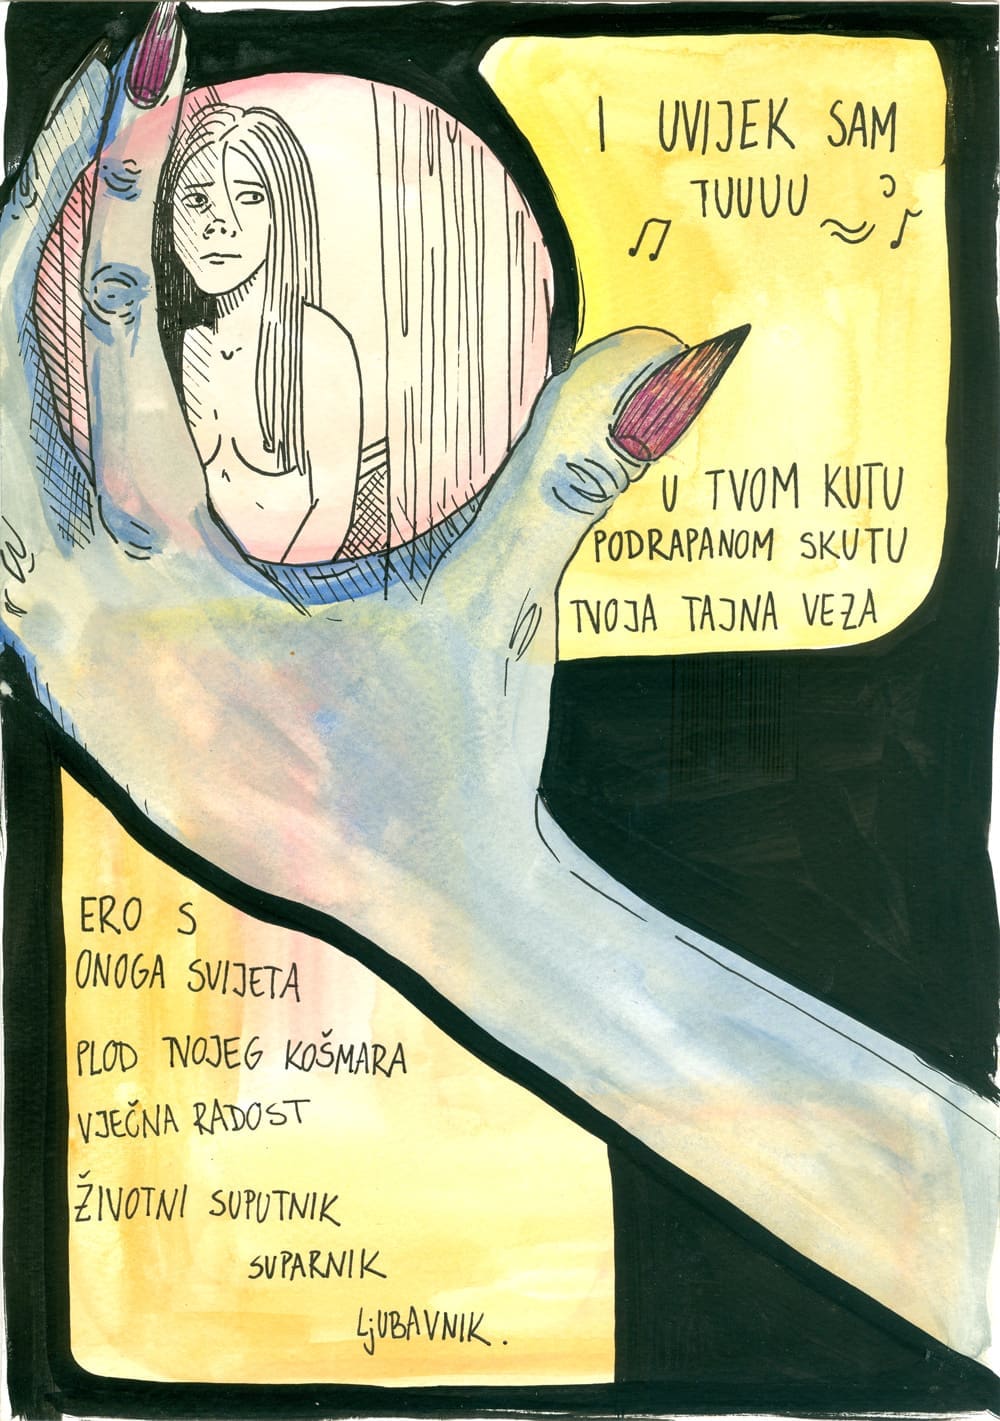 I UVIJEK SAM
TUUUU
U TVOM KUTU
PODRAPANOM SKUTU
TVOJA TAJNA VEZA
ERO S
ONOGA SVIJETA
PLOD TVOJEG KOŠMARA
VJEČNA RADOST
ŽIVOTNI SUPUTNIK
SUPARNIK
LjUBAVNIK.